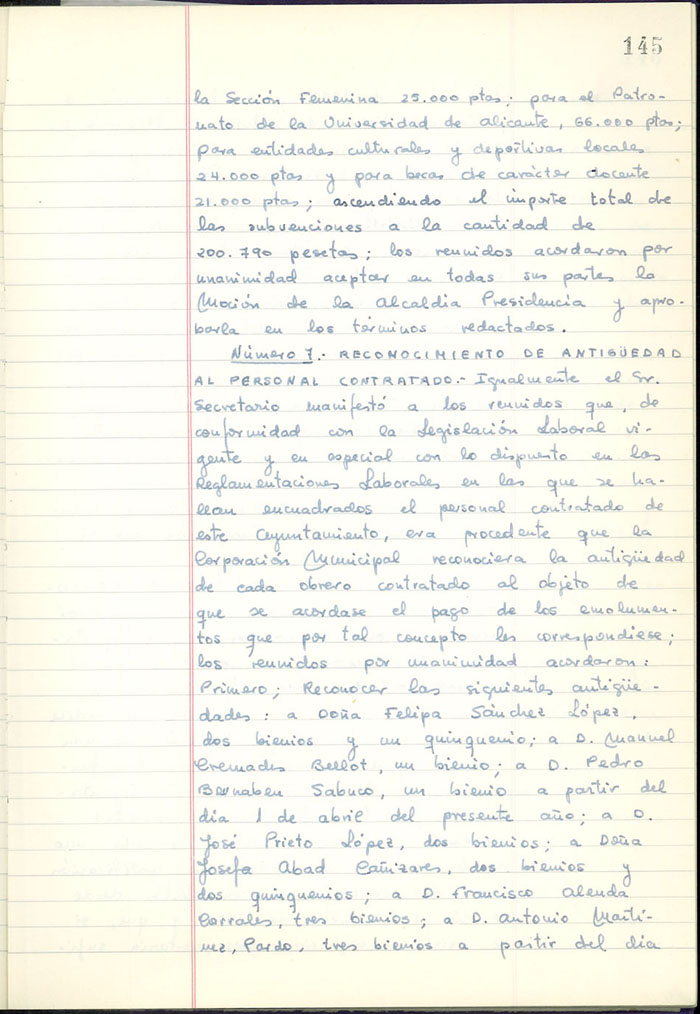 145
la Sección Femenina 25.000 ptas; para el Patro-
nato de la Universidad de Alicante, 66.000 ptas;
para entidades culturales y deportivas locales
24.000 ptas y para becas de carácter docente
21.000 ptas; ascendiendo el importe total de
las subvenciones a la cantidad de
200.790 pesetas; los reunidos acordaron por
unanimidad aceptar en todas sus partes la
Moción de la Alcaldia Presidencia y apro-
barla en los términos redactados.
Número 7.- RECONOCIMIENTO DE ANTIGÜEDAD
AL PERSONAL CONTRATADO.- Igualmente el Sr.
Secretario manifestó a los reunidos que, de
conformidad con la Legislación Laboral vi-
gente y en especial con lo dispuesto en las
Reglamentaciones Laborales en las que se ha-
llan encuadrados el personal contratado de
este Ayuntamiento, era procedente que la
Corporación Municipal reconociera la antigüedad
de cada obrero contratado al objeto de
que se acordase el pago de los emolumen-
tos que por tal concepto les correspondiese;
los reunidos por unanimidad acordaron:
Primero; Reconocer las siguientes antigüe-
dades: a Doña Felipa Sánchez López,
dos bienios y un quinquenio; a D. Manuel
Cremades Bellot, un bienio; a D. Pedro
Bernabeu Sabuco, un bienio a partir del
día 1 de abril del presente año; a D.
José Prieto López, dos bienios; a Doña
Josefa Abad Cañizares, dos bienios y
dos quinquenios; a D. Francisco Alenda
Corrales, tres bienios; a D. Antonio Martí-
nez, Pardo, tres bienios a partir del día